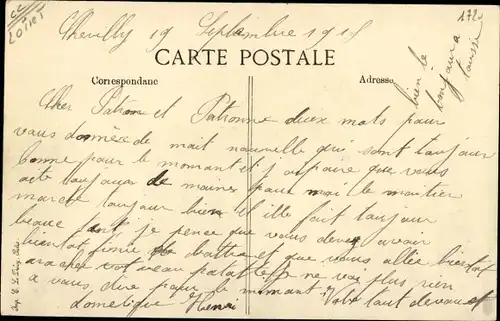 Loiret
172
Chevilly 19 Septembre 1915
CARTE POSTALE
Correspondanc
Adresse
bien le
bonjour a
toussi
Cher Patron et Patronne deux mots pour
vous donnée de mait nouvelle qui sont toujour
bonne pour le momant et j aispaire que vous
aite toujour de maines pour moi le maitier
marche toujour bien il ille fait toujour
beaue tant je pence que vous devez avoir
bientot finie de battre et que vous allée bientot
arachée vot au patate je ne vai plus rien
a vous dire pour le momant Votre tout devouet
dometique Henri